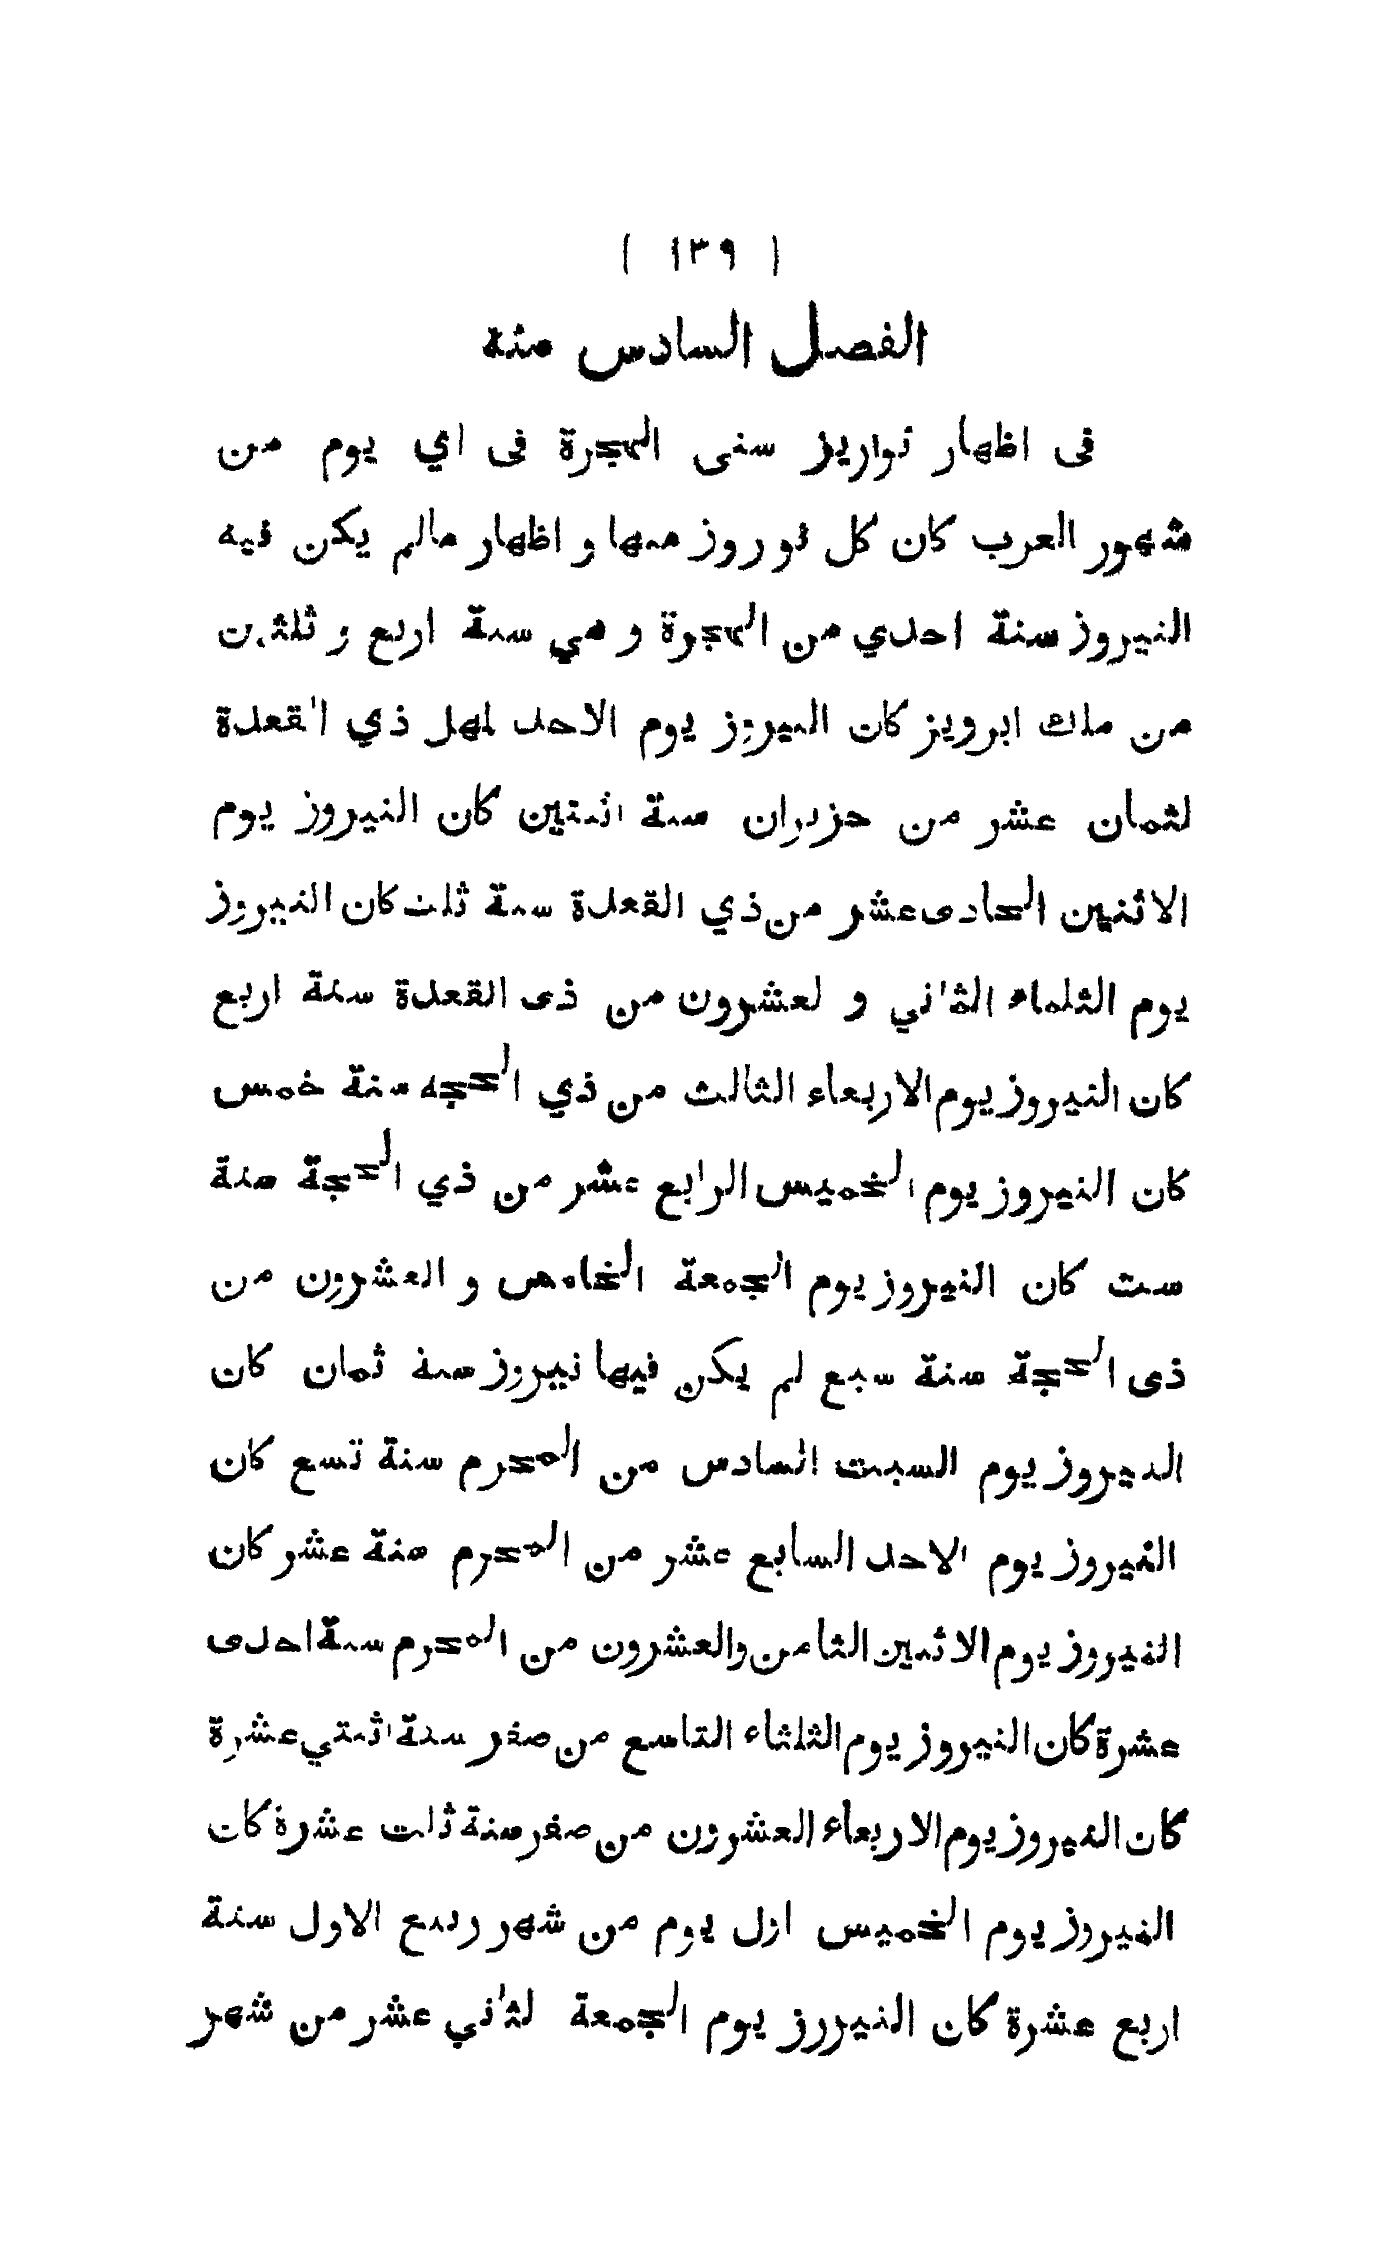 ( ١٣٩ )
الفصل السادس منة
فى اظهار نواريز سنى الهجرة فى اي يوم من
شهور العرب كان كل نوروز منها و اظهار مالم يكن فيه
النيروز سنة احدي من الهجرة و هي سنة اربع و ثلثين
من ملك ابرويز كان النيروز يوم الاحد لمهل ذي القعدة
لثمان عشر من حزيران سنة اثنتين كان النيروز يوم
الاثنين الحادى عشر من ذي القعدة سنة ثلث كان النيروز
يوم الثلثاء الثاني و لعشرون من ذى القعدة سنة اربع
كان النيروز يوم الاربعاء الثالث من ذي الحجه سنة خمس
كان النيروز يوم الخميس الرابع عشر من ذي الحجة سنة
ست كان النيروز يوم الجمعة الخامس و العشرون من
ذى الحجة سنة سبع لم يكن فيها نيروز سنة ثمان كان
النيروز يوم السبت السادس من المحرم سنة تسع كان
النيروز يوم الاحد السابع عشر من المحرم سنة عشر كان
النيروز يوم الاثنين الثامن والعشرون من المحرم سنة احدى
عشرة كان النيروز يوم الثلثاء التاسع من صفر سنة اثنتي عشرة
كان النيروز يوم الاربعاء العشرون من صفر سنة ثلث عشرة كان
النيروز يوم الخميس اول يوم من شهر ربيع الاول سنة
اربع عشرة كان النيروز يوم الجمعة لثاني عشر من شهر